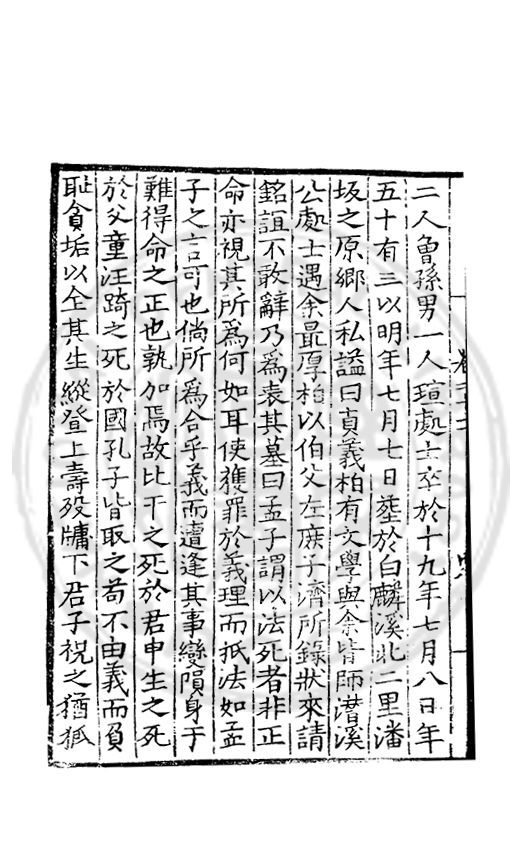 二人魯孫男一人瑄處士卒於十九年七月八日年
五十有三以明年七月七日塟於白麟溪北二里潘
坂之原鄉人私謚曰貞義柏有文學與余皆師濳溪
公處士遇余最厚柏以伯父左庻子濟所錄狀來請
銘誼不敢辭乃為表其墓曰孟子謂以法死者非正
命亦視其所爲何如耳使獲罪於義理而抵法如孟
子之言可也倘所爲合乎義而遭逢其事變隕身于
難得命之正也孰加焉故比干之死於君申生之死
於父童汪踦之死於國孔子皆取之苟不由義而負
耻貪垢以全其生縱登上壽歿牖下君子視之猶狐